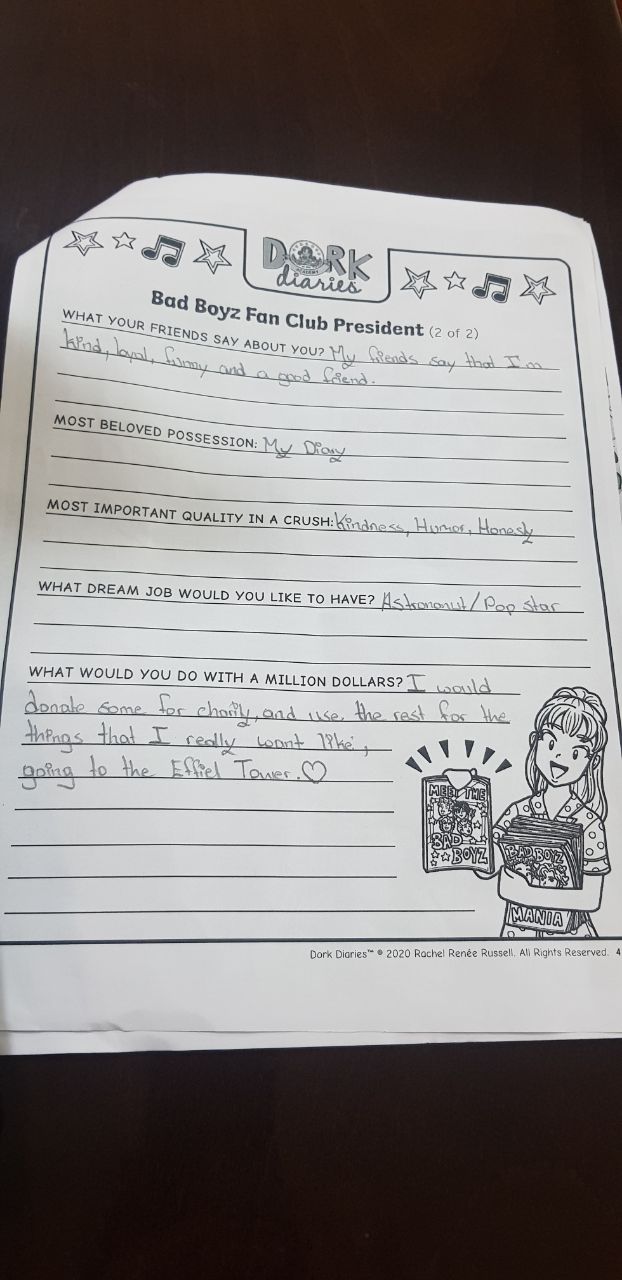 DORK
diaries
Bad Boyz Fan Club President (2 of 2)
WHAT YOUR FRIENDS SAY ABOUT YOU? My friends say that I'm
kind, loyal, funny and a good friend.
MOST BELOVED POSSESSION: My Diary
MOST IMPORTANT QUALITY IN A CRUSH: Kindness, Humor, Honesty
WHAT DREAM JOB WOULD YOU LIKE TO HAVE? Astronaut/Pop star
WHAT WOULD YOU DO WITH A MILLION DOLLARS? I would
donate some for charity, and use the rest for the
things that I really want like,
going to the Effiel Tower.♡
MEET THE
BAD
BOYZ
BAD BOYZ
MANIA
Dork Diaries™ © 2020 Rachel Renée Russell. All Rights Reserved. 4